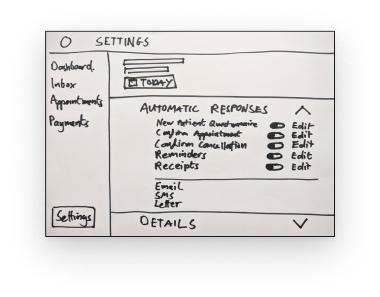 SETTINGS
Dashboard.
Inbox
Appointments
Payments
Settings
TODAY
AUTOMATIC RESPONSES
New Patient Questionnaire Edit
Confirm Appointment Edit
Confirm Cancellation Edit
Reminders Edit
Receipts Edit
Email
SMS
Letter
DETAILS